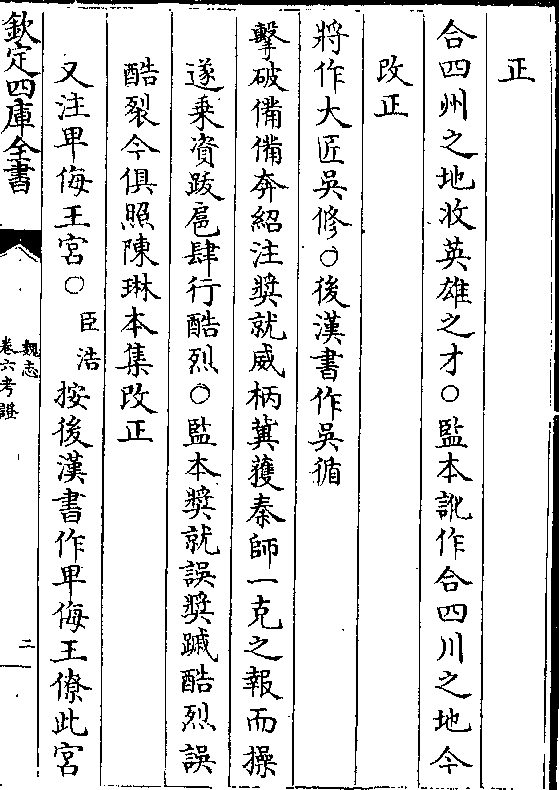 正
合四州之地收英雄之才○監本訛作合四川之地今
改正
將作大匠吳修○後漢書作吳循
擊破備備奔紹注奬就威柄冀獲秦師一克之報而操
遂乗資跋扈肆行酷烈○監本奬就誤奬蹴酷烈誤
酷裂今俱照陳琳本集改正
又注卑侮王宮○臣浩按後漢書作卑侮王僚此宮
欽定四庫全書
魏志
卷六考證
二